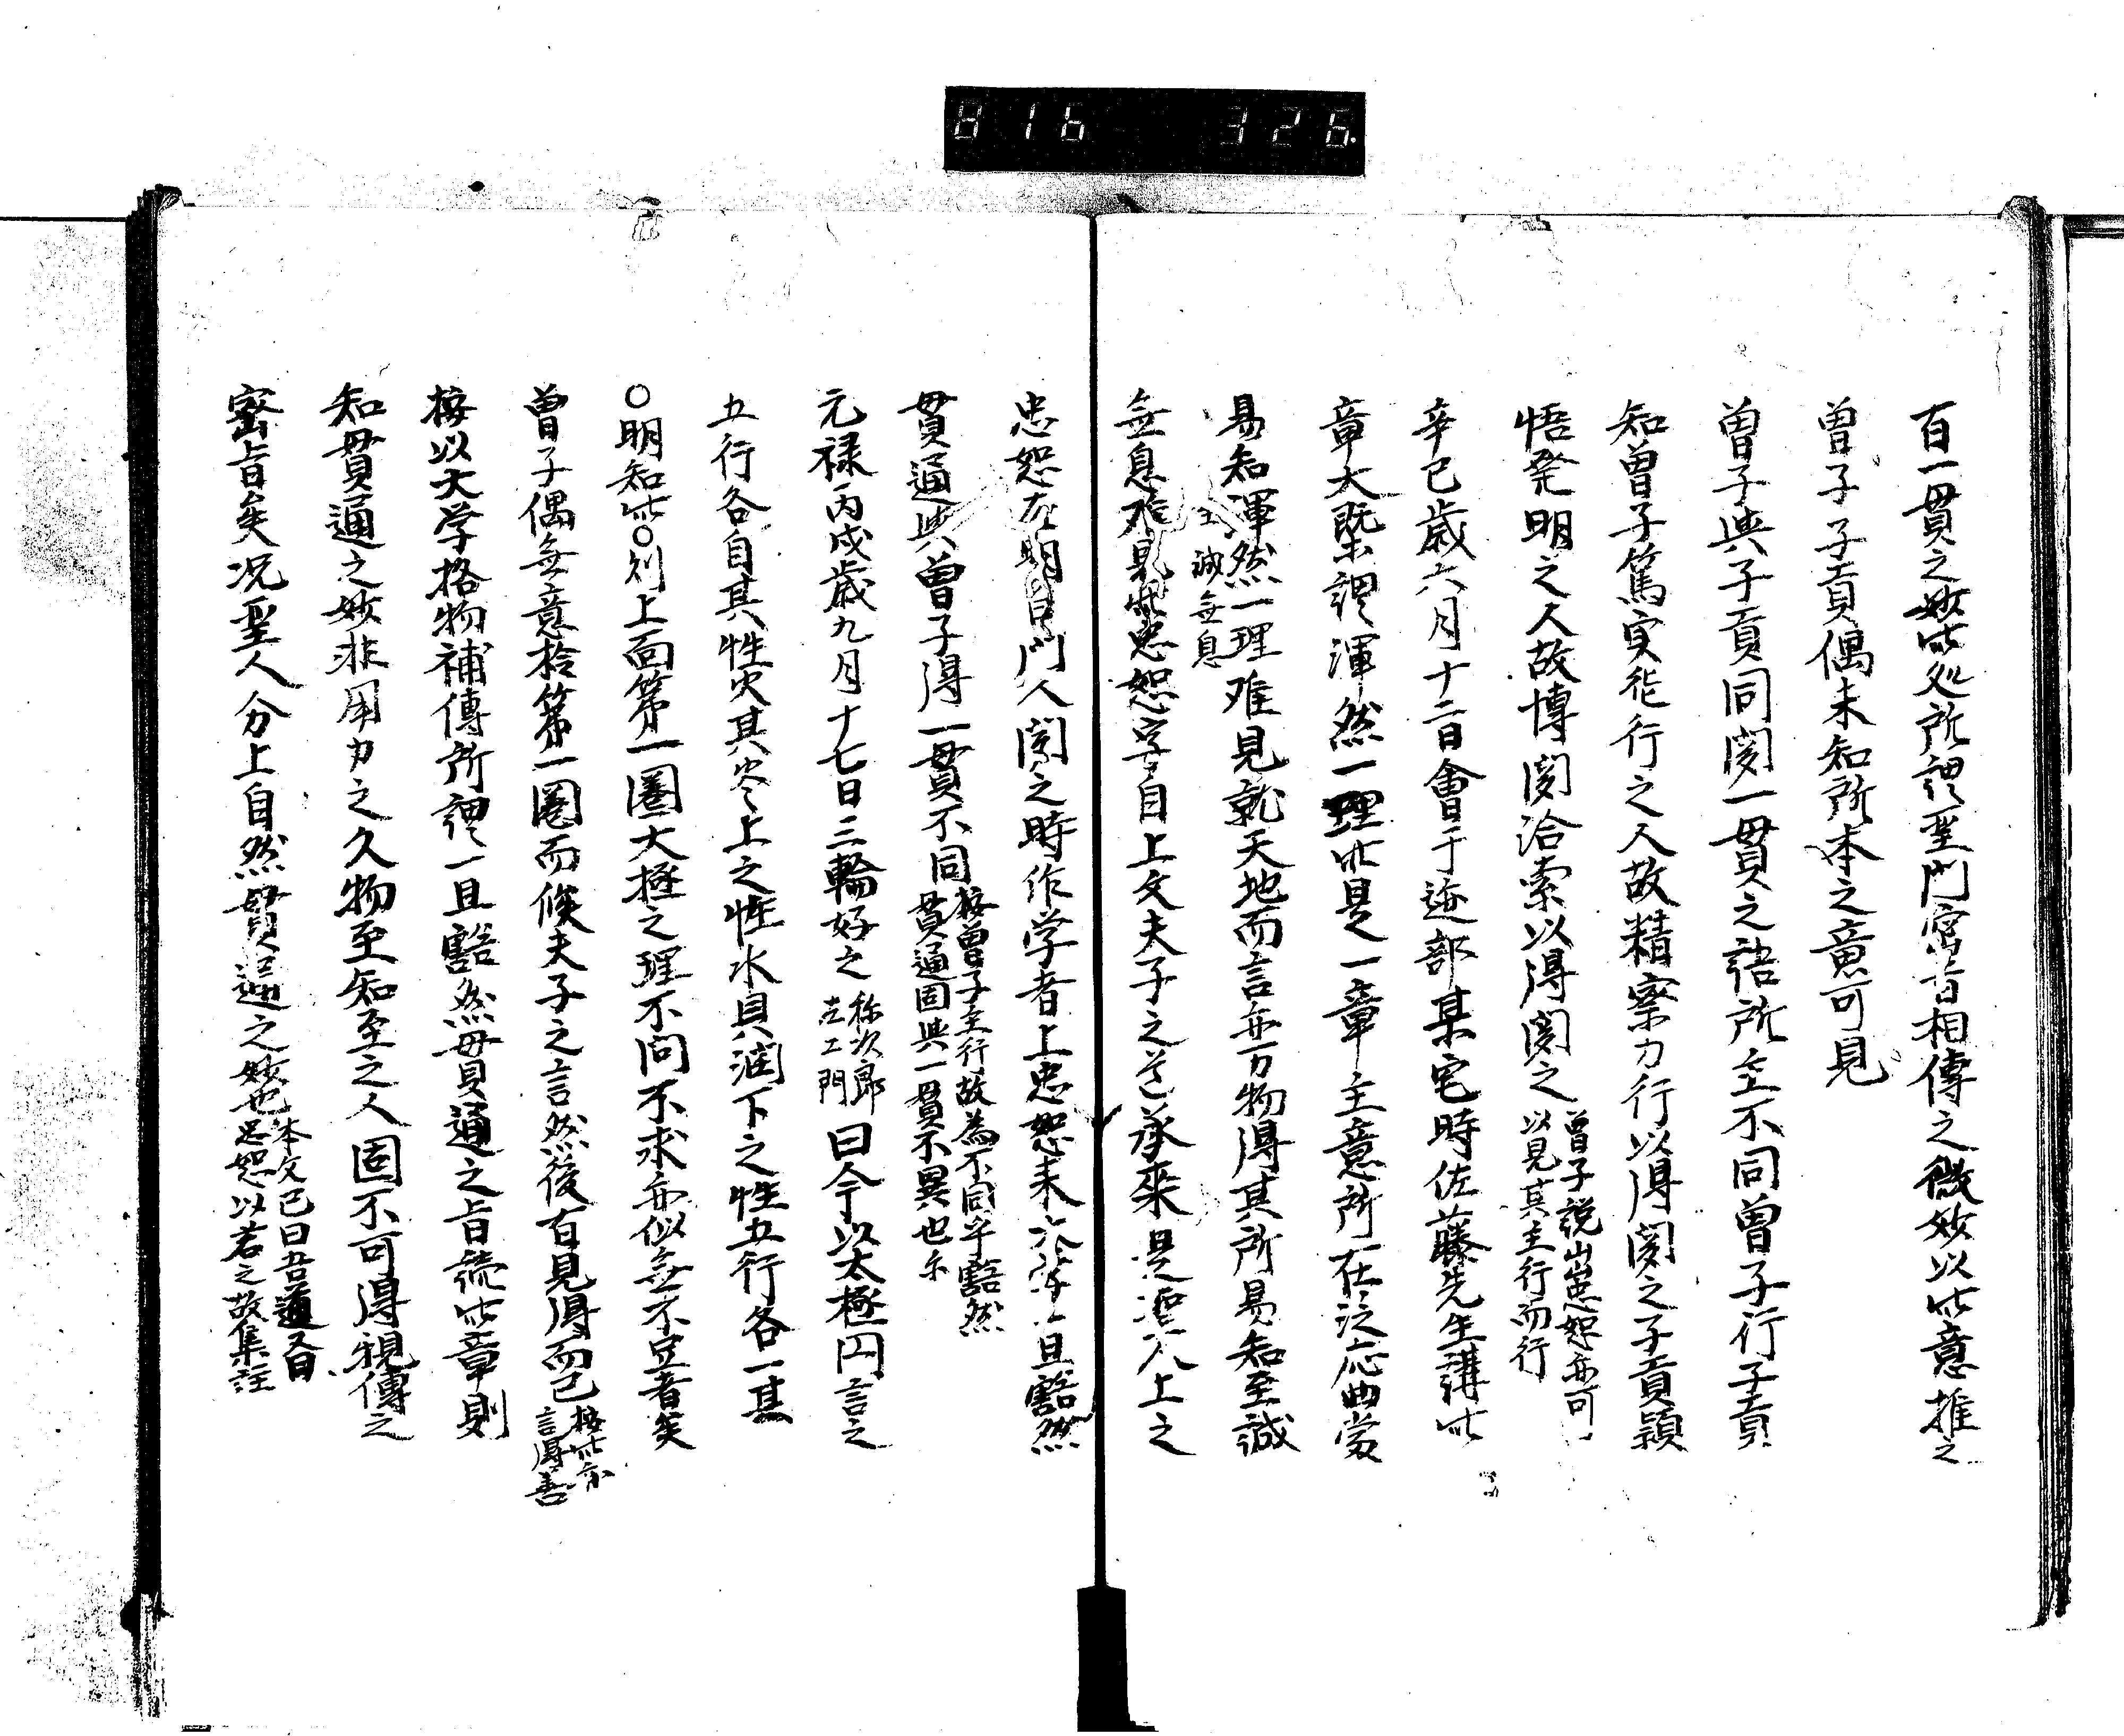 816 326
百一貫之妙此処所謂聖門密旨相傳之微妙以此意推之
曽子子貢偶未知所本之意可見
曽子與子貢同聞一貫之語所至不同曽子行子貢
知曽子篤実能行之人故精察力行以得聞之子貢頴
悟発明之人故博聞洽索以得聞之
曽子説出忠恕亦可
以見其主行而行
辛巳歳六月十二日會于迹部某宅時佐藤先生講此
章大既謂渾然一理此是一章主意所在泛応曲當
易知渾然一理难見就天地而言亦万物得其所易知至誠
至誠無息
無息难見此忠恕字自上文夫子之道承来是聖人上之
忠恕在明日門人聞之時作学者上忠恕未一旦豁然
貫通與曽子得一貫不同
按曽子主行故為不同乎豁然
貫通固與一貫不異也
元禄丙戌歳九月十七日三輪好之
称次郎
左工門
曰今以太極円言之
五行各自其性火其炎上之性水具潤下之性五行各一其
○明知此○列上面第一圏大極之理不問不求亦似無不宜者矣
曽子偶無意於第一圏而俟夫子之言然後有見得而已
按此亦
言得善
按以大学格物補傳所謂一旦豁然毋貫通之旨読此章則
知貫通之妙非用力之久物至知至之人固不可得視傳之
密旨矣况聖人分上自然貫通之妙也
本文已曰吾道又曰
忠恕以若之故集註